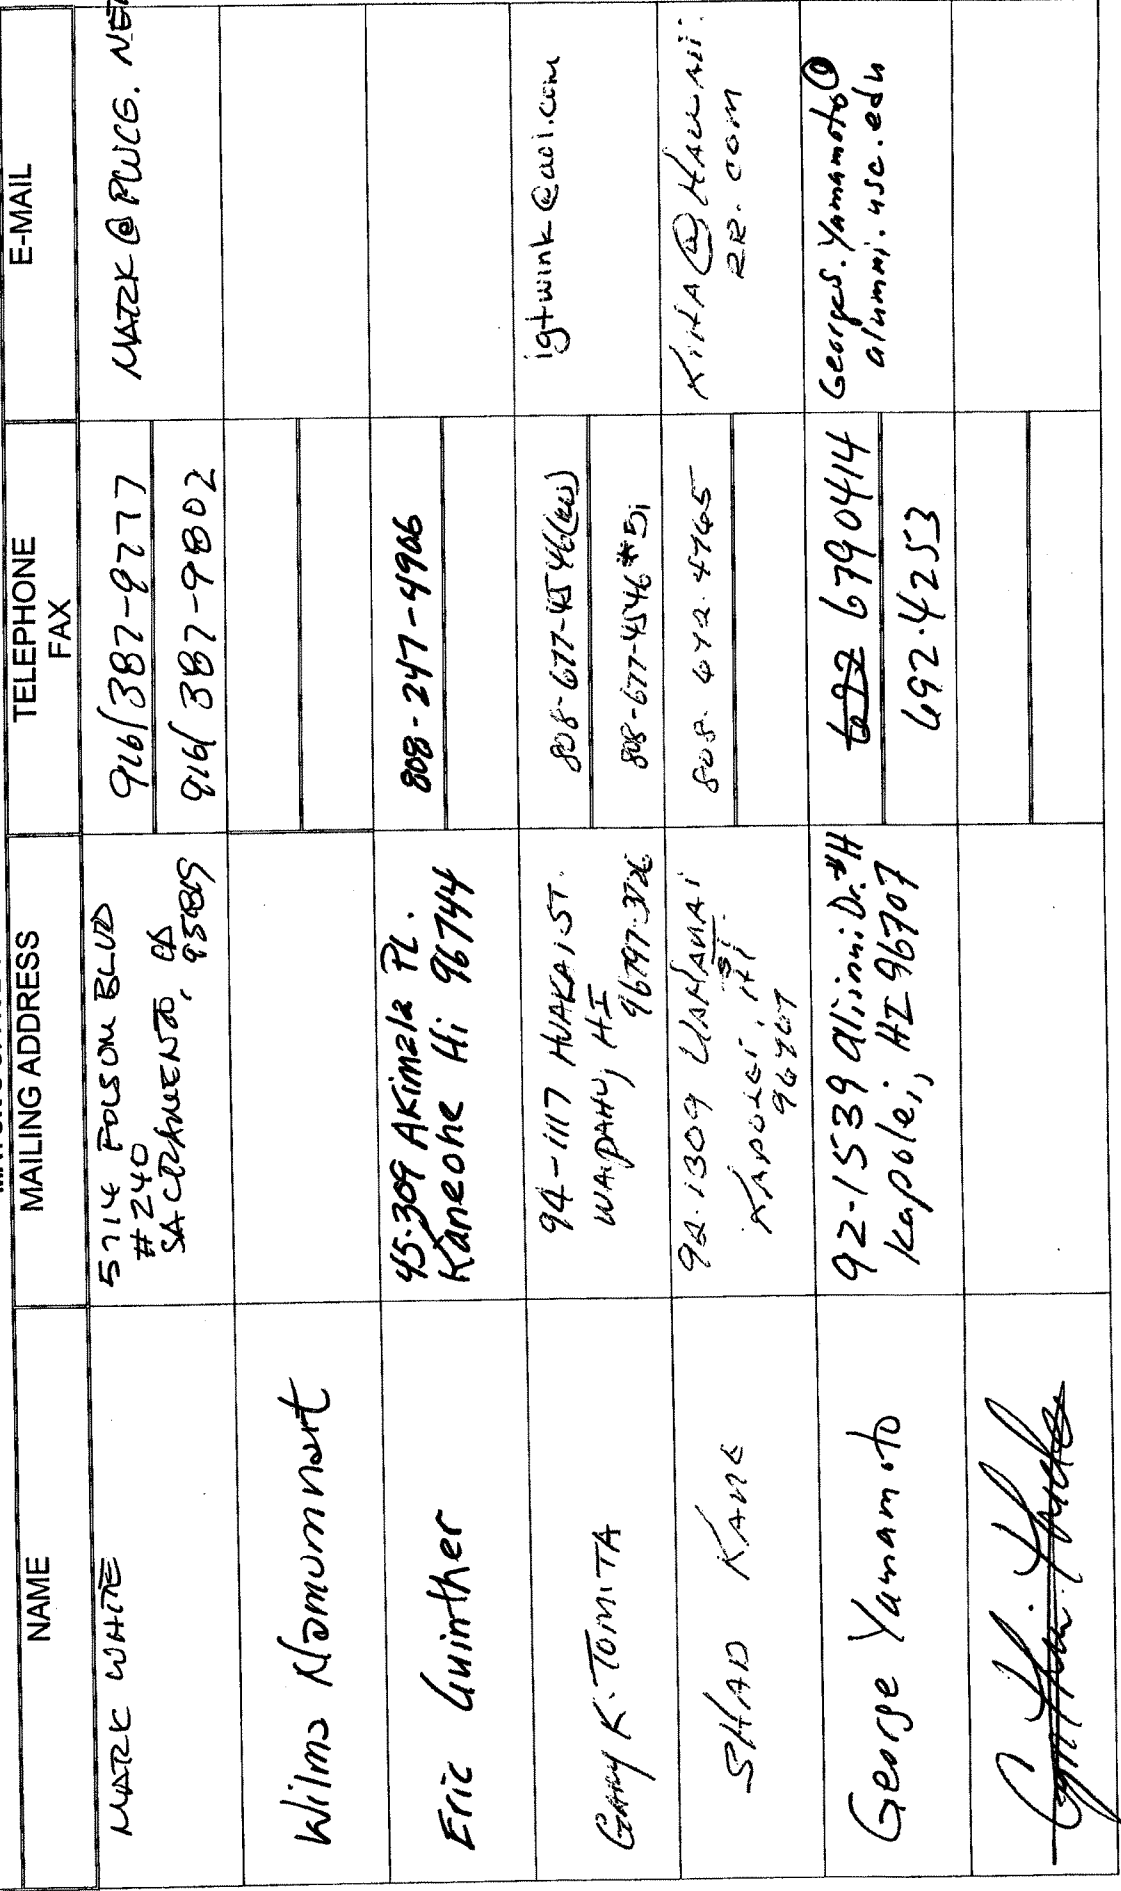 NAME
MAILING ADDRESS
TELEPHONE
FAX
E-MAIL
MARK WHITE
5714 FOLSOM BLVD
#240
SACRAMENTO, CA
95819
916/387-9777
916/387-9802
MARK@PWCG.NE
Wilma Namumnart
Eric Guinther
45-309 Akimala Pl.
Kaneohe Hi 96744
808-247-4906
GARY K. TOMITA
94-1117 HUAKAI ST.
WAIPAHU, HI
96797-3726
808-677-4546
808-677-4546 *51
igtwink@aol.com
SHAD KANE
92-1309 UAHANAI
St.
KAPOLEI, HI
96707
KIHA@HAWAII.
RR.COM
George Yamamoto
92-1539 Aliinui Dr. #H
Kapolei, HI 96707
692 6790414
692-4253
George.Yamamoto@
alumni.usc.edu